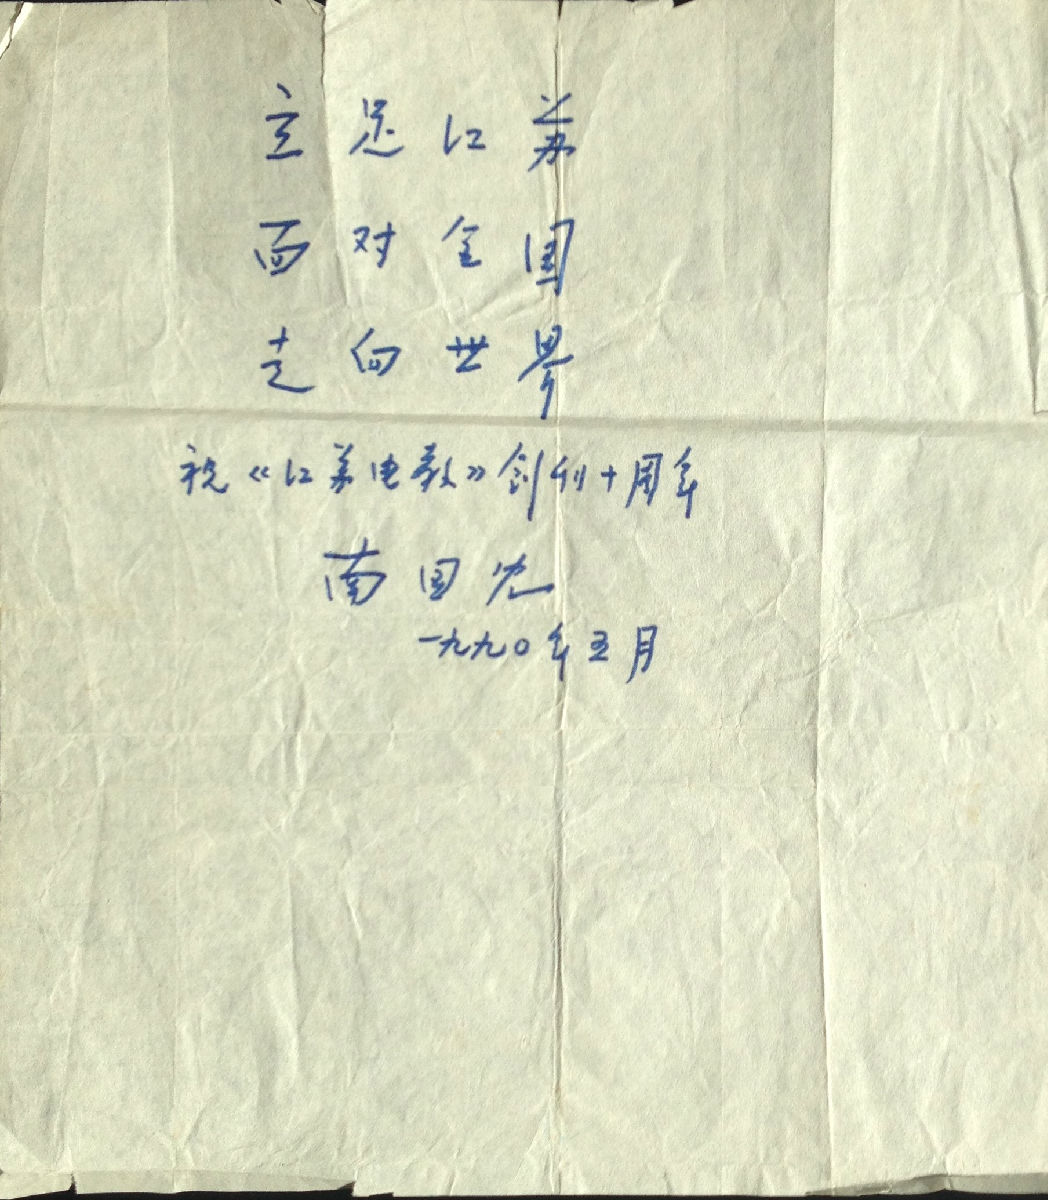 立足江苏
面对全国
走向世界
祝《江苏电教》创刊十周年
南国农
一九九〇年五月